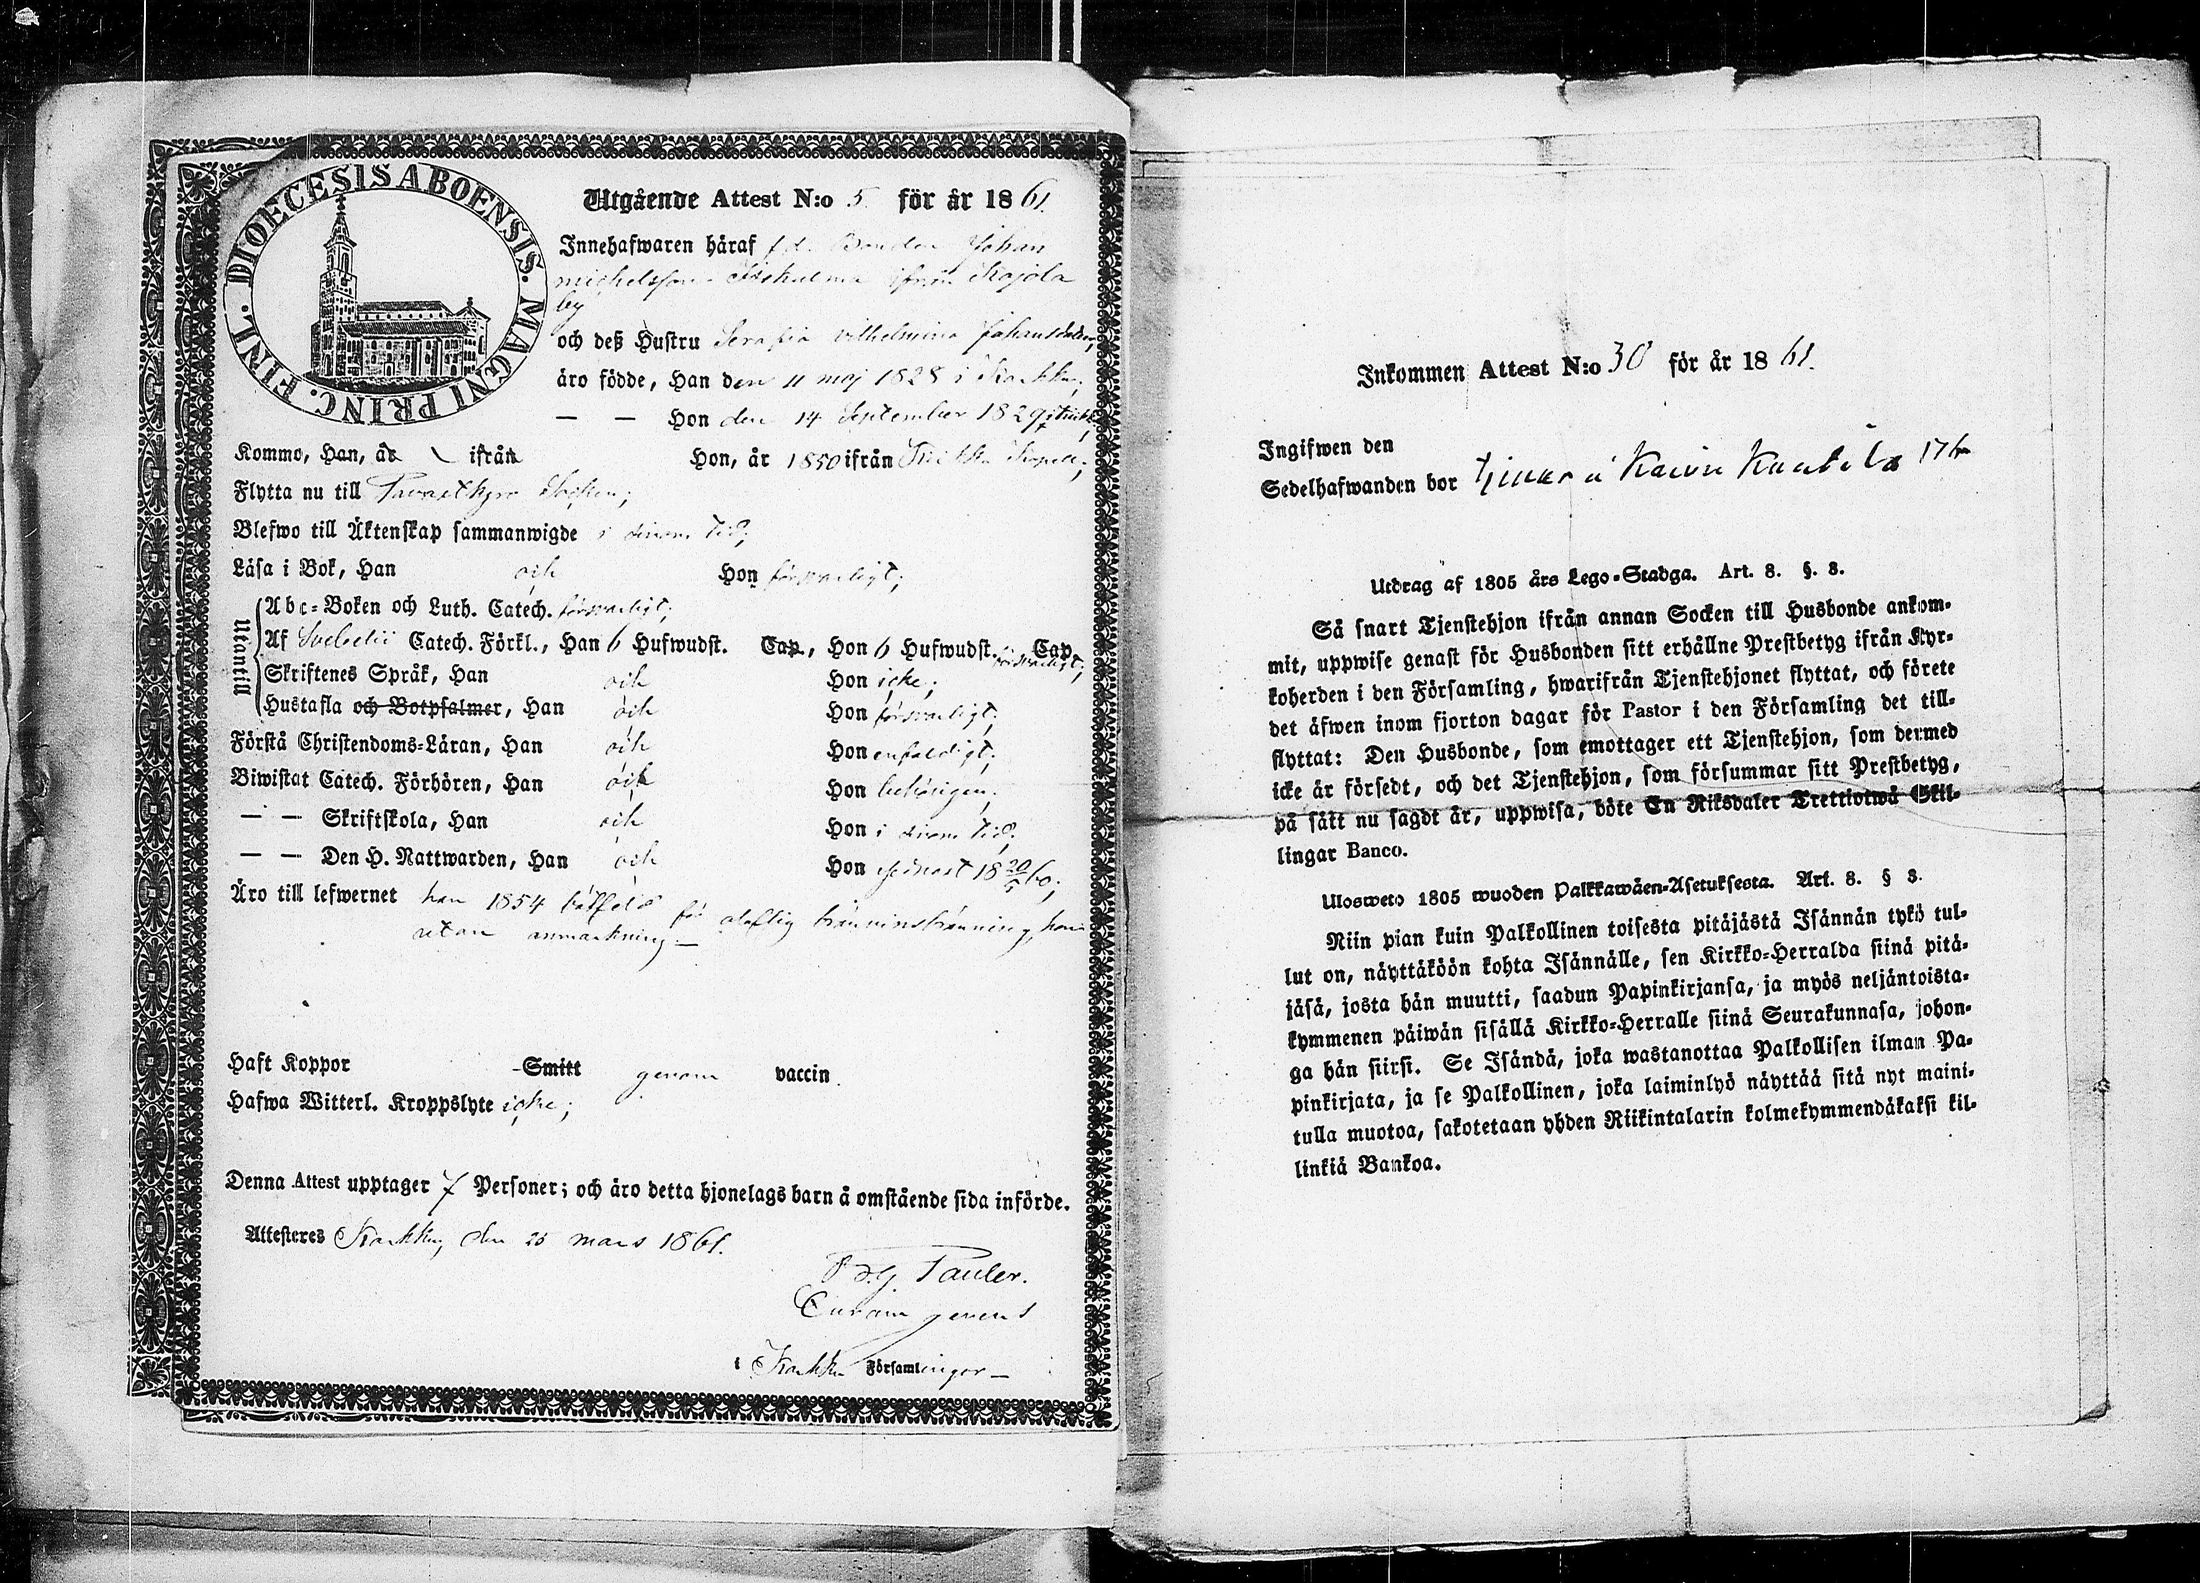 DIOECESIS ABOENSIS. MAGNI PRINC. FINL.
Utgående Attest N:o 5 för år 1861.
Innehafwaren häraf f.d. Bonden Johan
Michelsson ifrån Kojola
by
och deß Hustru Serafia Vilhelmina Johansdotter,
äro födde, Han den 11 maj 1828 i Karkku,
— — Hon den 14 September 1829
Kommo, Han, år ifrån Hon, år 1850 ifrån Kapell;
Flytta nu till Tavastkyro Socken;
Blefwo till Äktenskap sammanwigde i sinom tid;
Läsa i Bok, Han och Hon försvarligt;
Utantill
Abc-Boken och Luth. Catech. försvarligt;
Af Svebelii Catech. Förkl., Han 6 Hufwudst. Cap., Hon 6 Hufwudst. Cap. försvarligt;
Skriftenes Språk, Han och Hon icke;
Hustafla och Botpsalmer, Han och Hon försvarligt;
Förstå Christendoms-Läran, Han och Hon enfaldigt;
Biwistat Catech. Förhören, Han och Hon behörigen;
— — Skriftskola, Han och Hon i sinom tid;
— — Den H. Nattwarden, Han och Hon sednast 18 20/5 60;
Äro till lefwernet han 1854 bötfäld för olaflig bränvinsbränning, hon
utan anmärkning —
Haft Koppor Smitt genom vaccin
Hafwa Witterl. Kroppslyte icke;
Denna Attest upptager 7 Personer; och äro detta hjonelags barn å omstående sida införde.
Attesteres Karkku, den 25 mars 1861.
Pauler.
Curam gerens
i Karkku Församlingar —
Inkommen Attest N:o 30 för år 1861.
Ingifwen den
Sedelhafwanden bor 176
Utdrag af 1805 års Lego-Stadga. Art. 8. §. 8.
Så snart Tjenstehjon ifrån annan Socken till Husbonde ankom-
mit, uppwise genast för Husbonden sitt erhållne Prestbetyg ifrån Kyr-
koherden i den Församling, hwarifrån Tjenstehjonet flyttat, och förete
det äfwen inom fjorton dagar för Pastor i den Församling det till-
flyttat: Den Husbonde, som emottager ett Tjenstehjon, som dermed
icke är försedt, och det Tjenstehjon, som försummar sitt Prestbetyg,
på sätt nu sagdt är, uppwisa, böte En Riksdaler Trettiotwå Skil-
lingar Banco.
Ulosweto 1805 wuoden Palkkawäen-Asetuksesta. Art. 8. § 8.
Niin pian kuin Palkollinen toisesta pitäjästä Isännän tykö tul-
lut on, näyttäköön kohta Isännälle, sen Kirkko-Herralda siinä pitä-
jäsä, josta hän muutti, saadun Papinkirjansa, ja myös neljäntoista-
kymmenen päiwän sisällä Kirkko-Herralle siinä Seurakunnasa, johon-
ga hän siirsi. Se Isändä, joka wastanottaa Palkollisen ilman Pa-
pinkirjata, ja se Palkollinen, joka laiminlyö näyttää sitä nyt maini-
tulla muotoa, sakotetaan yhden Riikintalarin kolmekymmendäkaksi kil-
linkiä Bankoa.